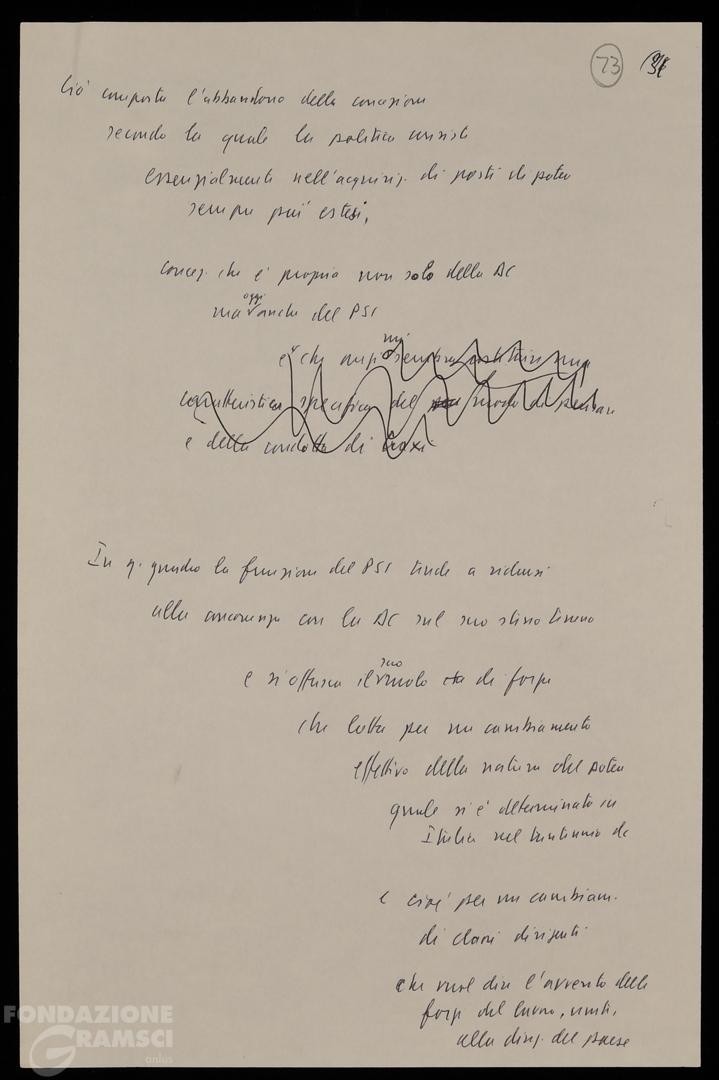 73
Ciò comporta l'abbandono della concezione
secondo la quale la politica consiste
essenzialmente nell'acquisiz. di posti di potere
sempre più estesi,
concez. che è propria non solo della DC
oggi
ma anche del PSI
e che
caratteristica specifica del modo di pensare
e della condotta di Craxi
In q. quadro la funzione del PSI tende a ridursi
alla concorrenza con la DC sul suo stesso terreno
suo
e si offusca il ruolo di forza
che lotta per un cambiamento
effettivo della natura del potere
quale si è determinato in
Italia nel trentennio dc
e cioè per un cambiam.
di classi dirigenti
che vuol dire l'avvento delle
forze del lavoro, unite,
alla direz. del paese
FONDAZIONE
GRAMSCI
onlus